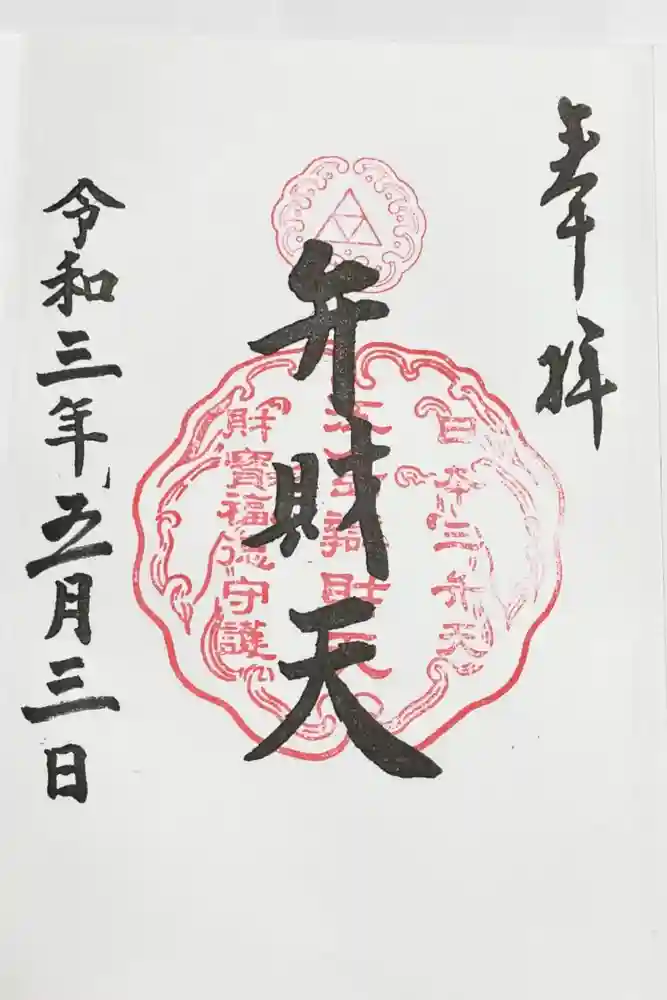 奉拝
日本三弁天
弁財天
財寶福徳守護
令和三年五月三日